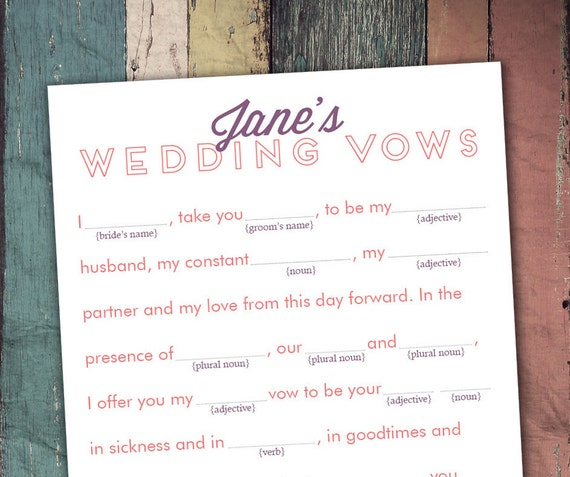 Jane's
WEDDING VOWS
I , take you , to be my
{bride's name} {groom's name} {adjective}
husband, my constant , my
{noun} {adjective}
partner and my love from this day forward. In the
presence of , our and ,
{plural noun} {plural noun} {plural noun}
I offer you my vow to be your
{adjective} {adjective} {noun}
in sickness and in , in goodtimes and
{verb}
you